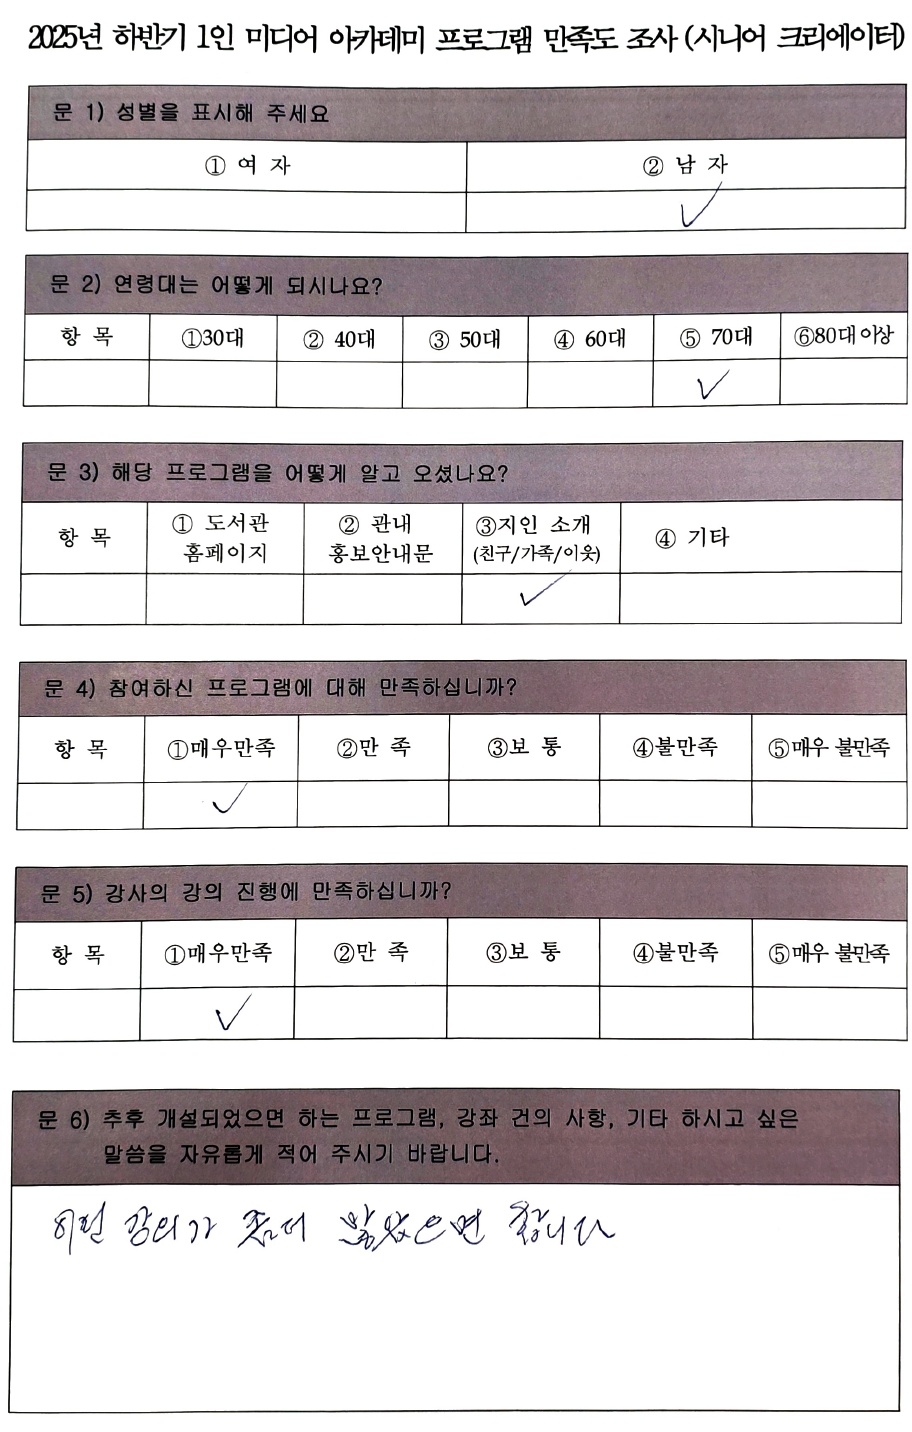 2025년 하반기 1인 미디어 아카데미 프로그램 만족도 조사 (시니어 크리에이터)
문 1) 성별을 표시해 주세요
① 여 자 ② 남 자
✓
문 2) 연령대는 어떻게 되시나요?
항 목 ①30대 ② 40대 ③ 50대 ④ 60대 ⑤ 70대 ⑥80대이상
✓
문 3) 해당 프로그램을 어떻게 알고 오셨나요?
항 목 ① 도서관 홈페이지 ② 관내 홍보안내문 ③지인 소개 (친구/가족/이웃) ④ 기타
✓
문 4) 참여하신 프로그램에 대해 만족하십니까?
항 목 ①매우만족 ②만 족 ③보 통 ④불만족 ⑤매우 불만족
✓
문 5) 강사의 강의 진행에 만족하십니까?
항 목 ①매우만족 ②만 족 ③보 통 ④불만족 ⑤매우 불만족
✓
문 6) 추후 개설되었으면 하는 프로그램, 강좌 건의 사항, 기타 하시고 싶은
말씀을 자유롭게 적어 주시기 바랍니다.
이런 강의가 좀더 많았으면 합니다